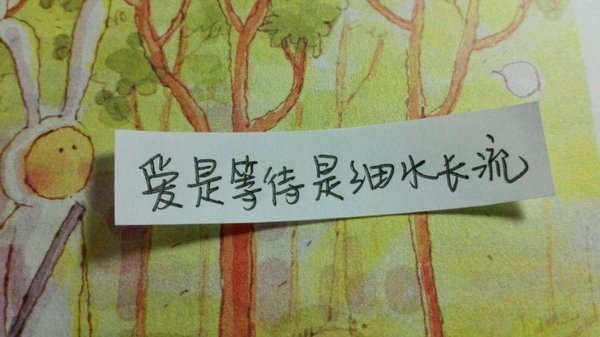 爱是等待是细水长流